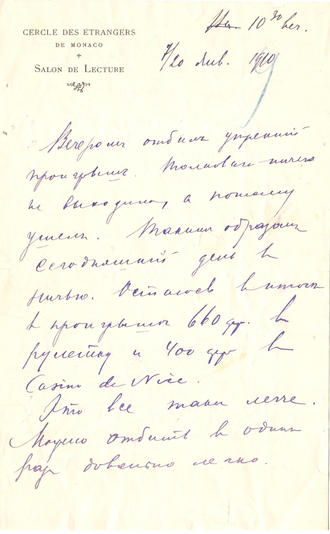 CERCLE DES ÉTRANGERS
DE MONACO
SALON DE LECTURE
10 30 веч.
7/20 янв. 1910
Вечером отбил утренний
проигрыш. Толковаго ничего
не выходило, а потому
ушел. Таким образом
сегодняшний день в
ничью. Осталось в итоге
в проигрыше 660 фр. в
рулетку и 400 фр в
Casino de Nice.
Это все таки легче.
Можно отбить в один
раз довольно легко.